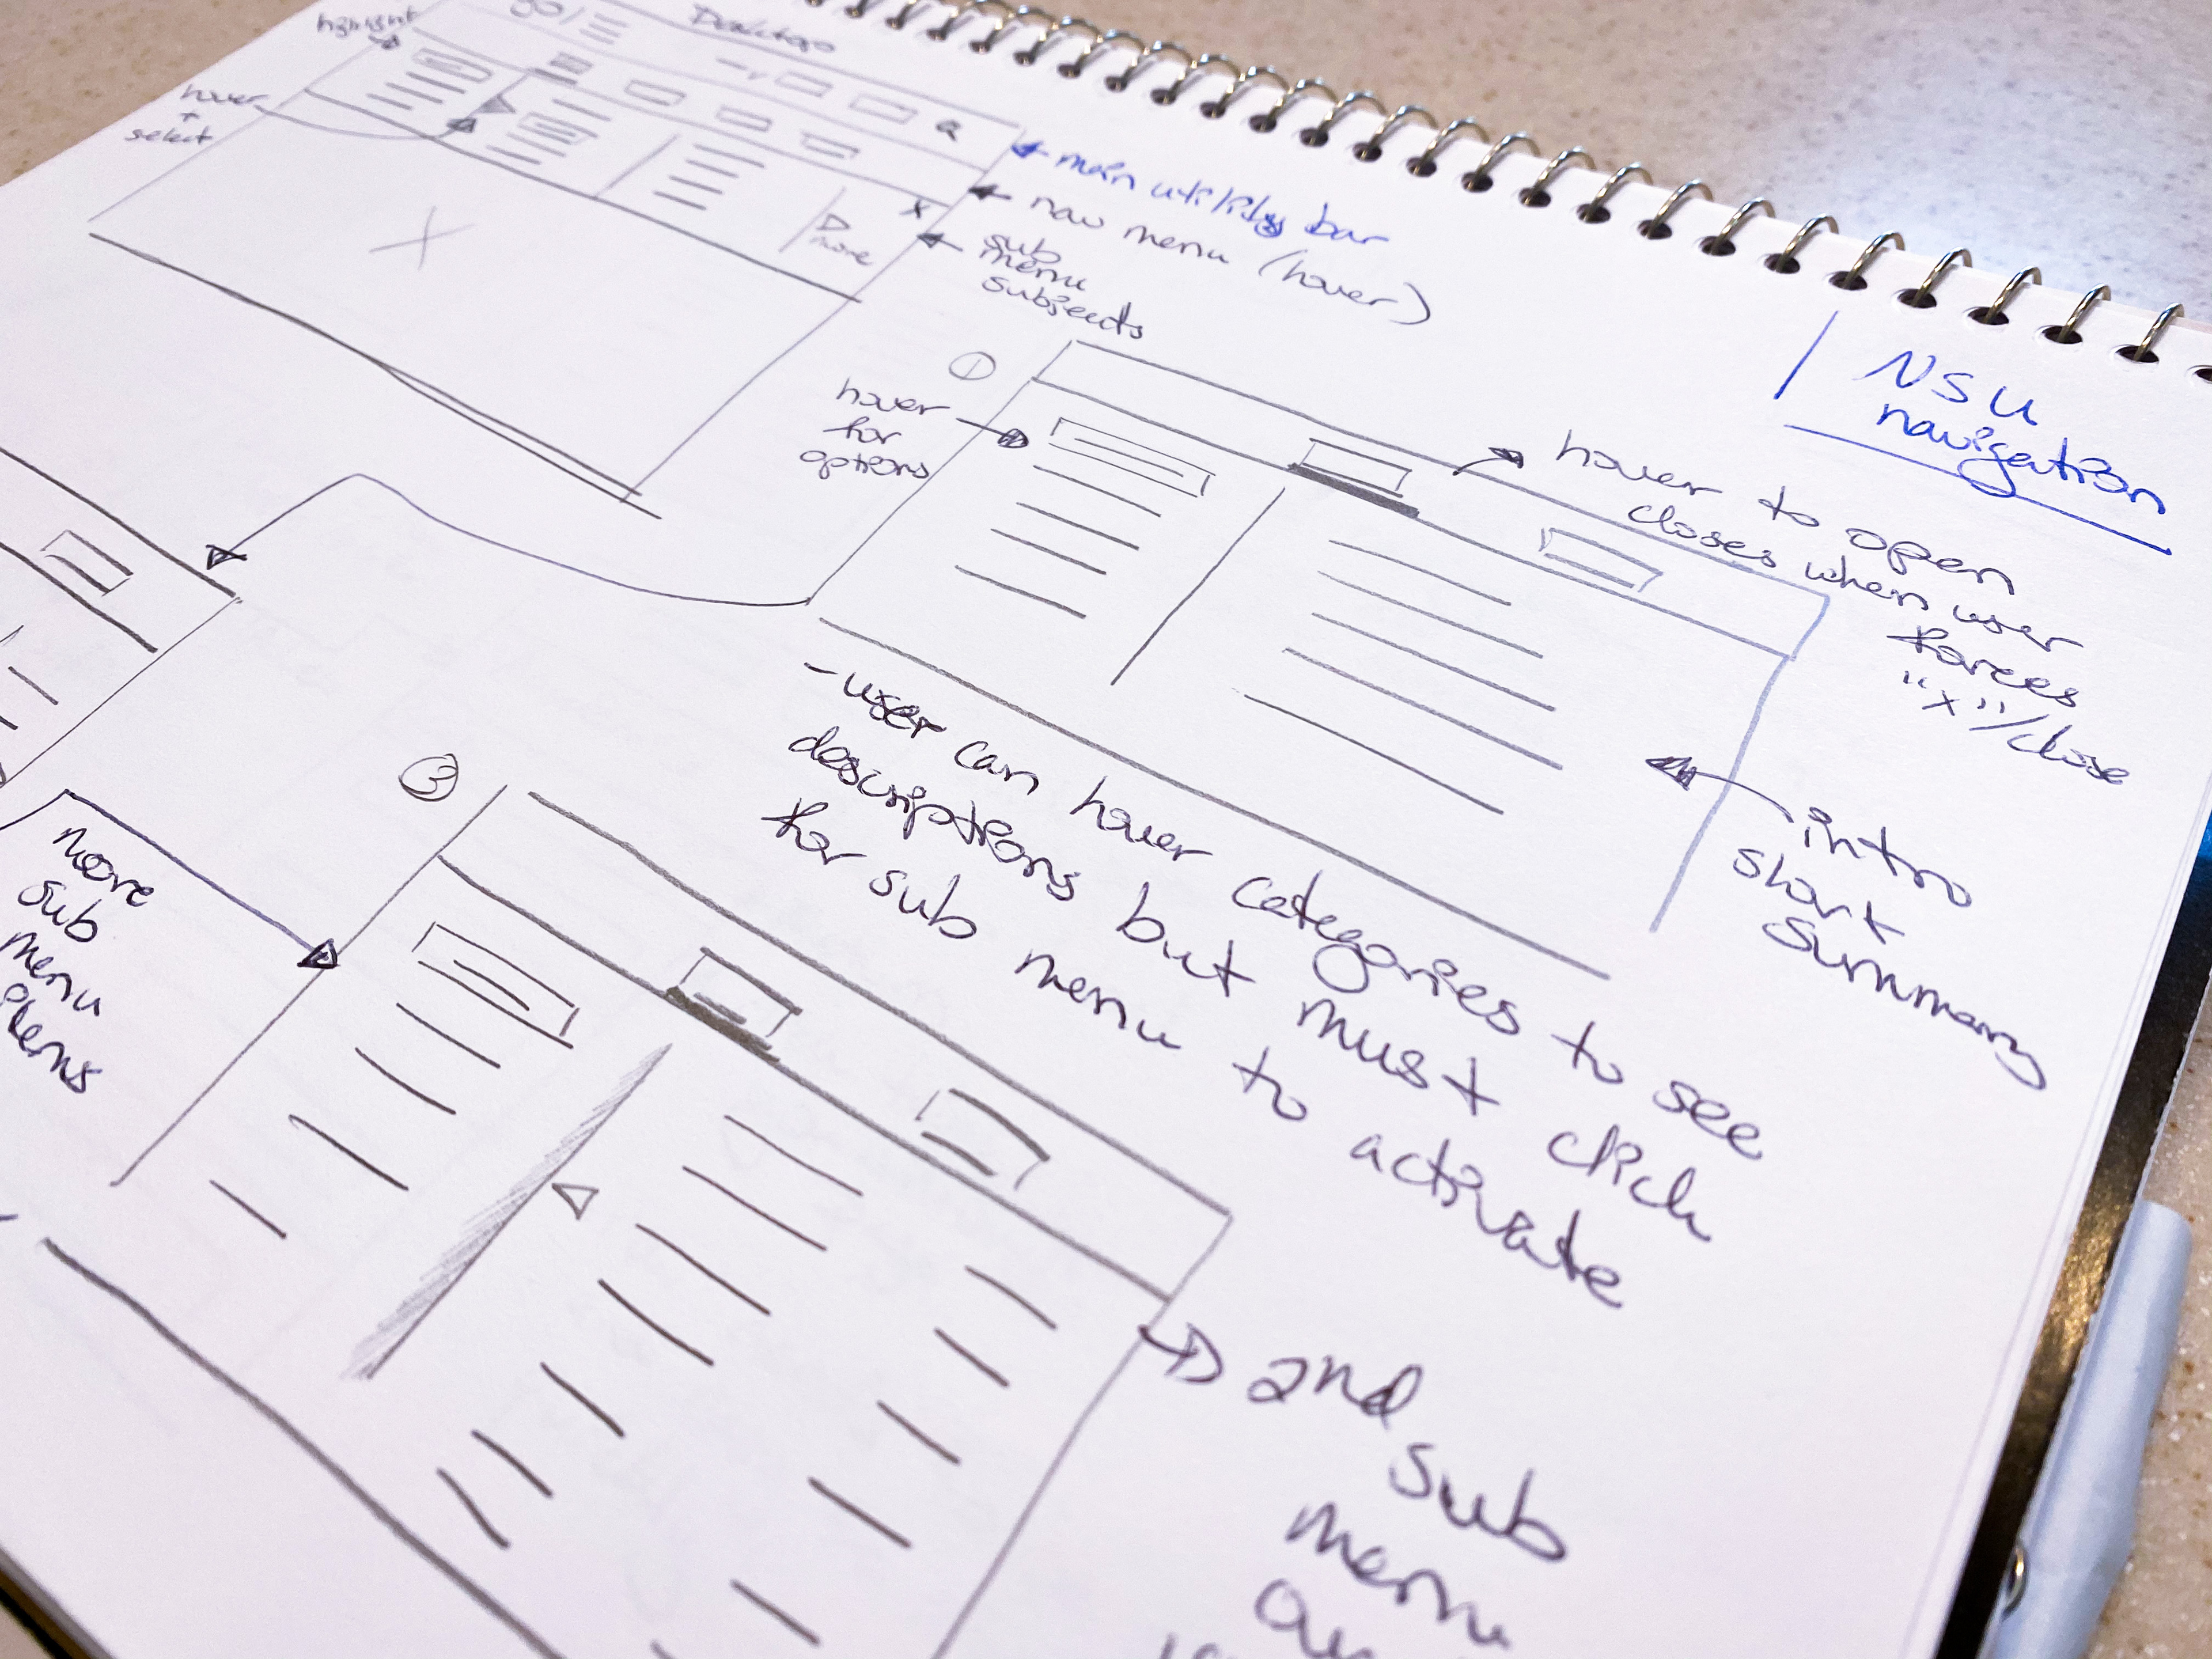 highlight
Desktop
hover
+
select
main utility bar
nav menu (hover)
sub
menu
subjects
more
x
NSU
navigation
①
hover
for
options
hover to open
closes when user
forces
"x"/close
intro
short
summary
-user can hover categories to see
descriptions but must click
for sub menu to activate
③
more
sub
menu
items
2nd
sub
menu